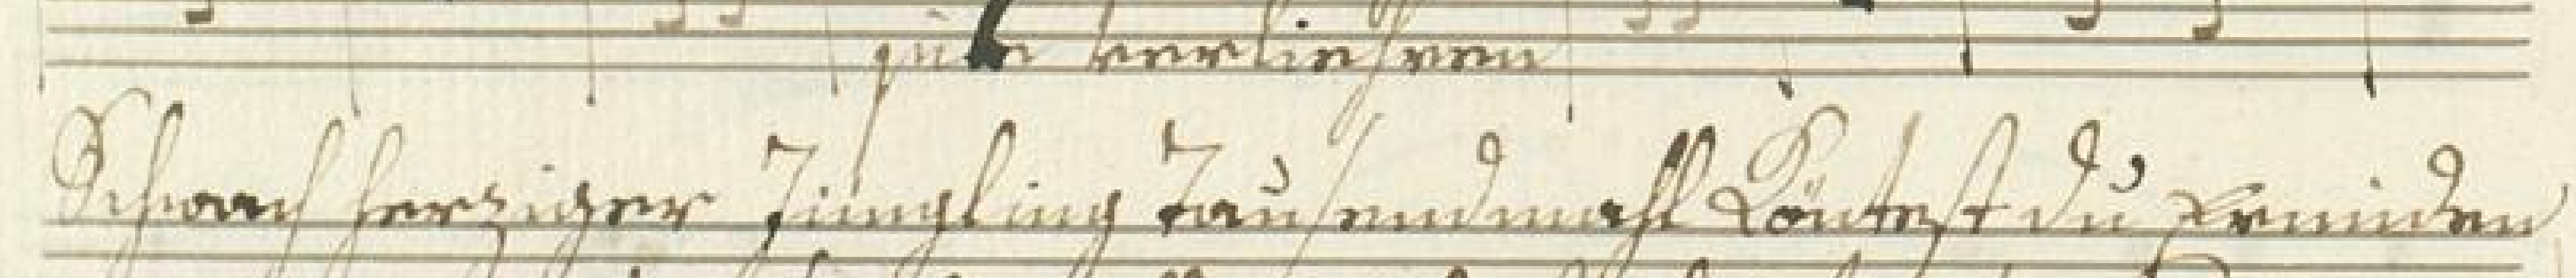 gute verliehren
Schwach herziger Jüngling Tausendmahl Köntest du Erminden